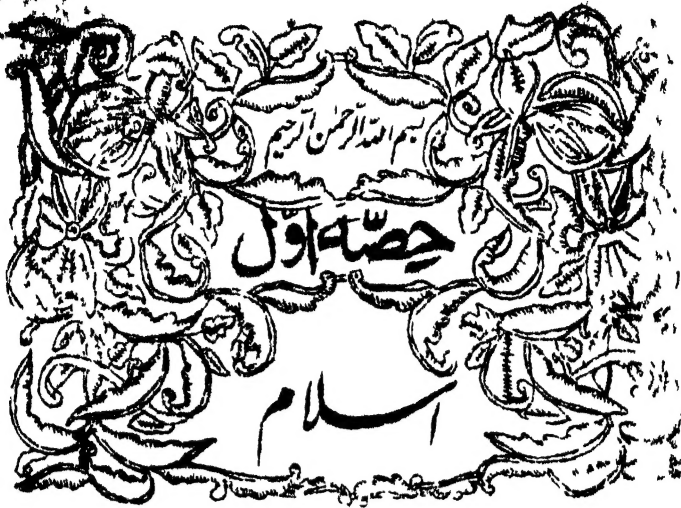 بسم اللہ الرحمٰن الرحیم
حِصّہ اوّل
اسلام